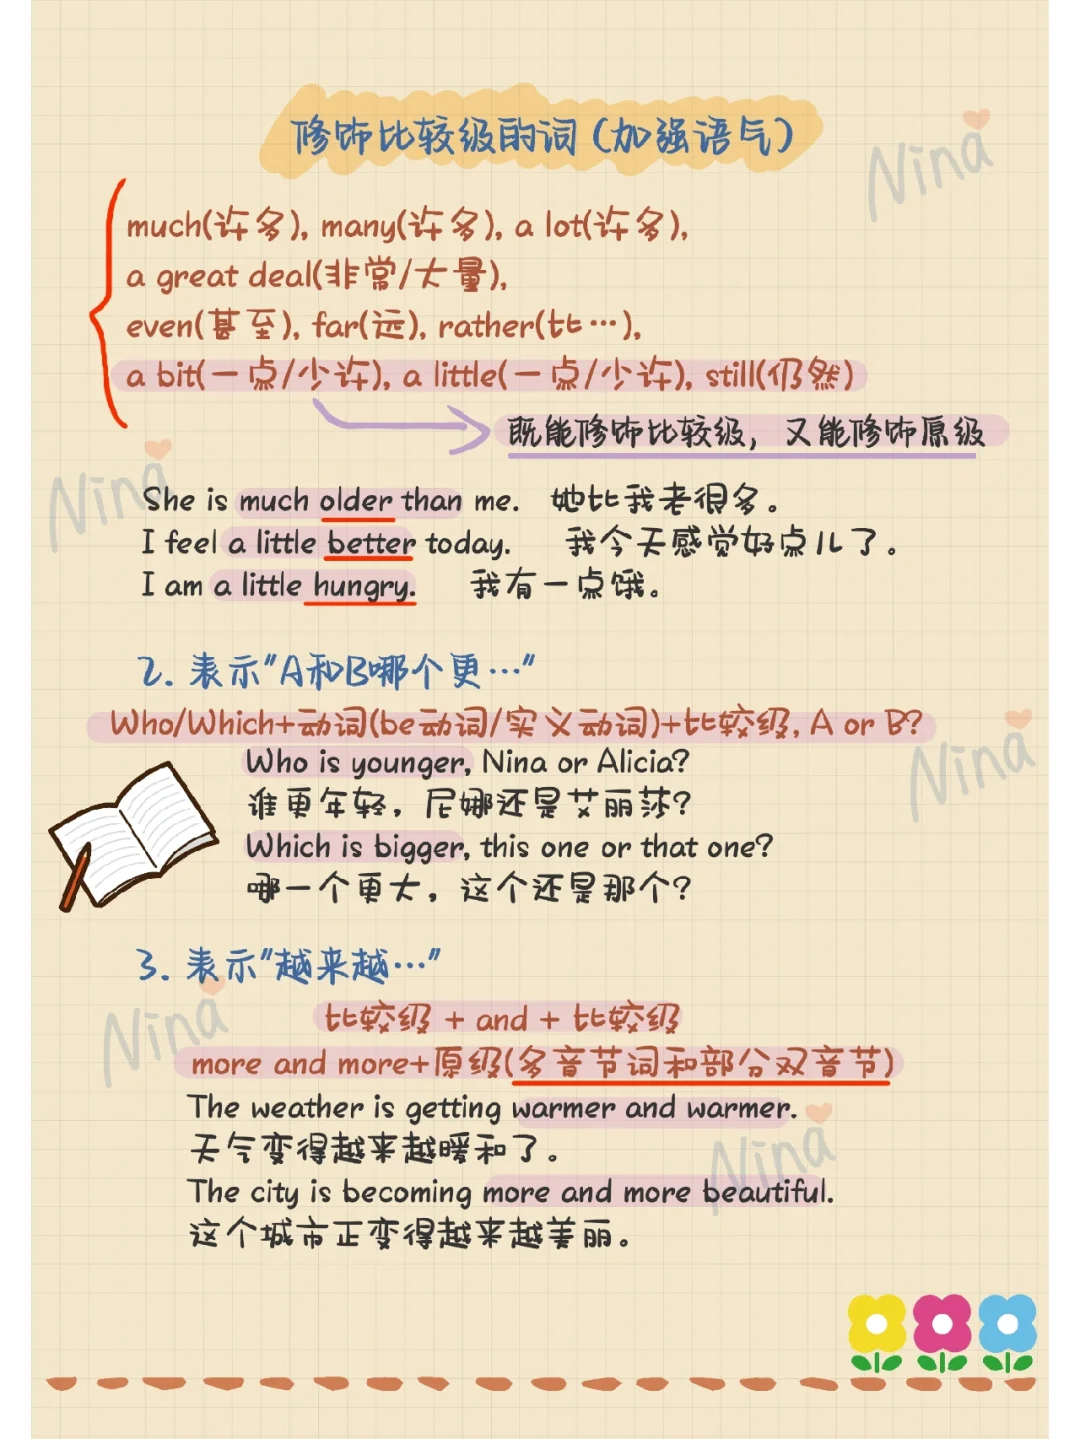 修饰比较级的词(加强语气)
Nina
much(许多), many(许多), a lot(许多),
a great deal(非常/大量),
even(甚至), far(远), rather(比…),
a bit(一点/少许), a little(一点/少许), still(仍然)
既能修饰比较级，又能修饰原级
Nina
She is much older than me. 她比我老很多。
I feel a little better today. 我今天感觉好点儿了。
I am a little hungry. 我有一点饿。
2. 表示"A和B哪个更…"
Who/Which+动词(be动词/实义动词)+比较级, A or B?
Nina
Who is younger, Nina or Alicia?
谁更年轻，尼娜还是艾丽莎?
Which is bigger, this one or that one?
哪一个更大，这个还是那个?
3. 表示"越来越…"
Nina
比较级 + and + 比较级
more and more+原级(多音节词和部分双音节)
The weather is getting warmer and warmer.
天气变得越来越暖和了。
Nina
The city is becoming more and more beautiful.
这个城市正变得越来越美丽。